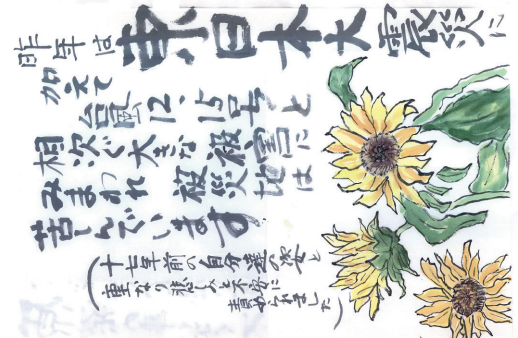 昨年は東日本大震災に
加えて
台風12、15号と
相次ぐ大きな被害に
みまわれ 被災地は
苦しんでいます。
（十七年前の自分達の姿と
重なり悲しみと不安に
責められました）